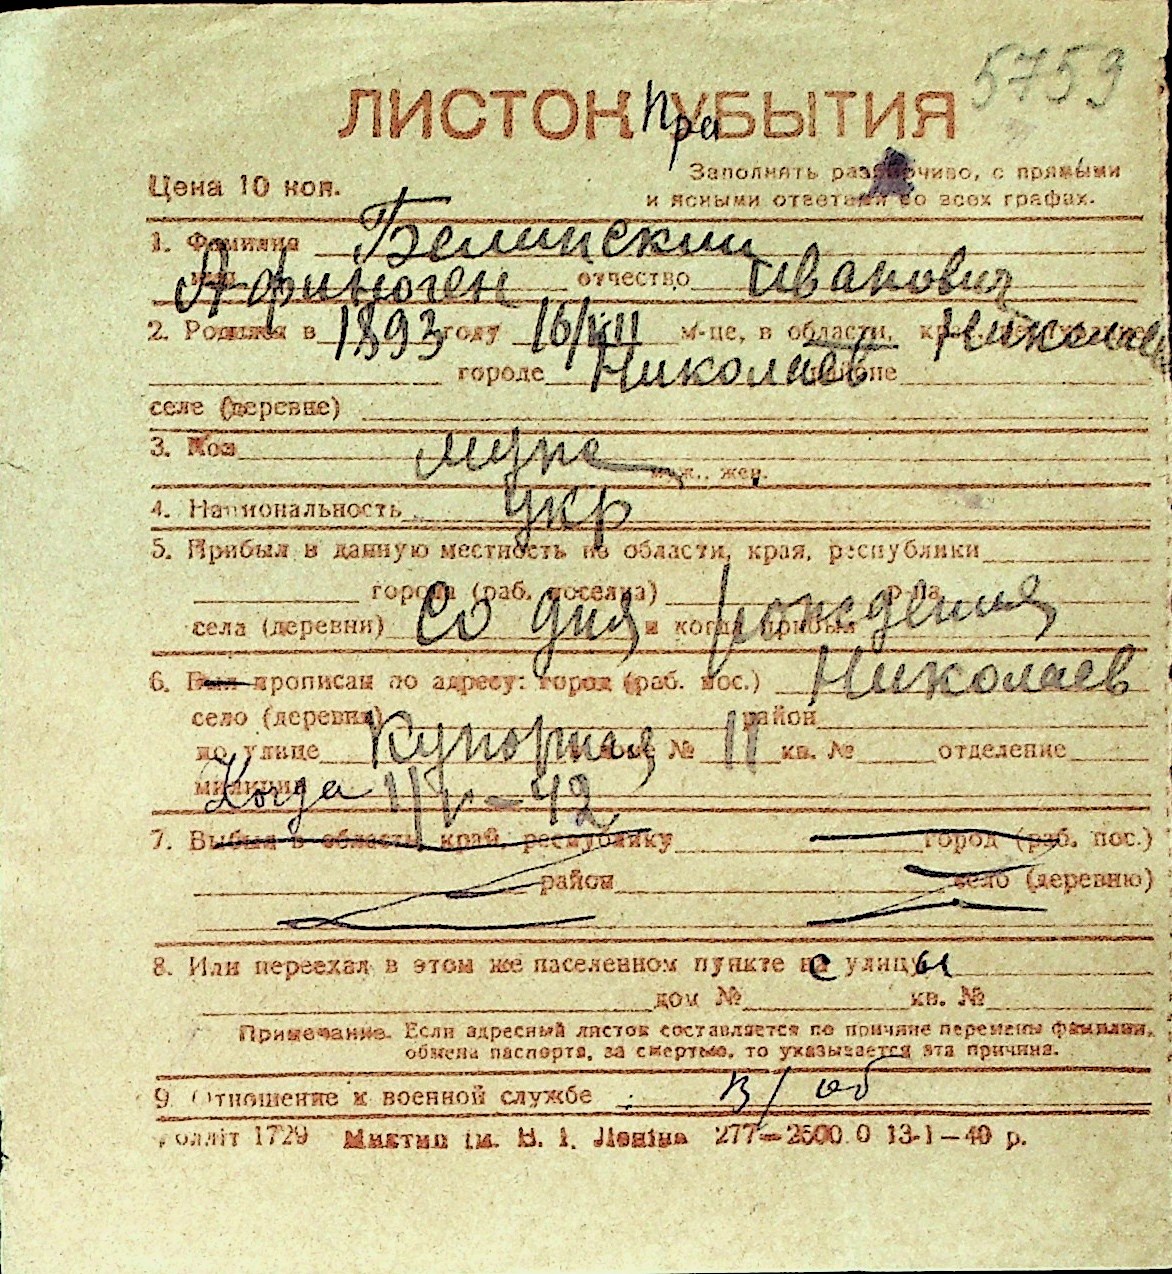 5759
ЛИСТОК при УБЫТИЯ
Цена 10 коп.
Заполнять разборчиво, с прямыми
и ясными ответами во всех графах.
1. Фамилия Белинский
имя Афиноген отчество Иванович
2. Родился в 1893 году 16/XII м-це, в области, Николаев
городе Николаев районе
селе (деревне)
3. Пол муж
муж., жен.
4. Национальность укр
5. Прибыл в данную местность из области, края, республики
города (раб. поселка) р-на
села (деревни) со дня рождения и когда прибыл
6. Был прописан по адресу: город (раб. пос.) Николаев
село (деревня) район
по улице Купорная доме № 11 кв. № отделение
милиции Когда 1/V-42
7. Выбыл в область, край, республику город (раб. пос.)
район село (деревню)
8. Или переехал в этом же населенном пункте с улицы
дом № кв. №
Примечание. Если адресный листок составляется по причине перемены фамилии,
обмена паспорта, за смертью, то указывается эта причина.
9. Отношение к военной службе в/об
Голліт 1729 Миктип ім. В. І. Леніна 277—2500.0 13-1—40 р.